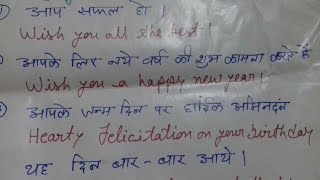 आप सफल हो।
Wish you all the best!
आपके लिए नये वर्ष की शुभ कामना करते है
Wish you a happy new year!
आपके जन्म दिन पर हार्दिक अभिनंदन
Hearty Felicitation on your birthday
यह दिन बार-बार आये।